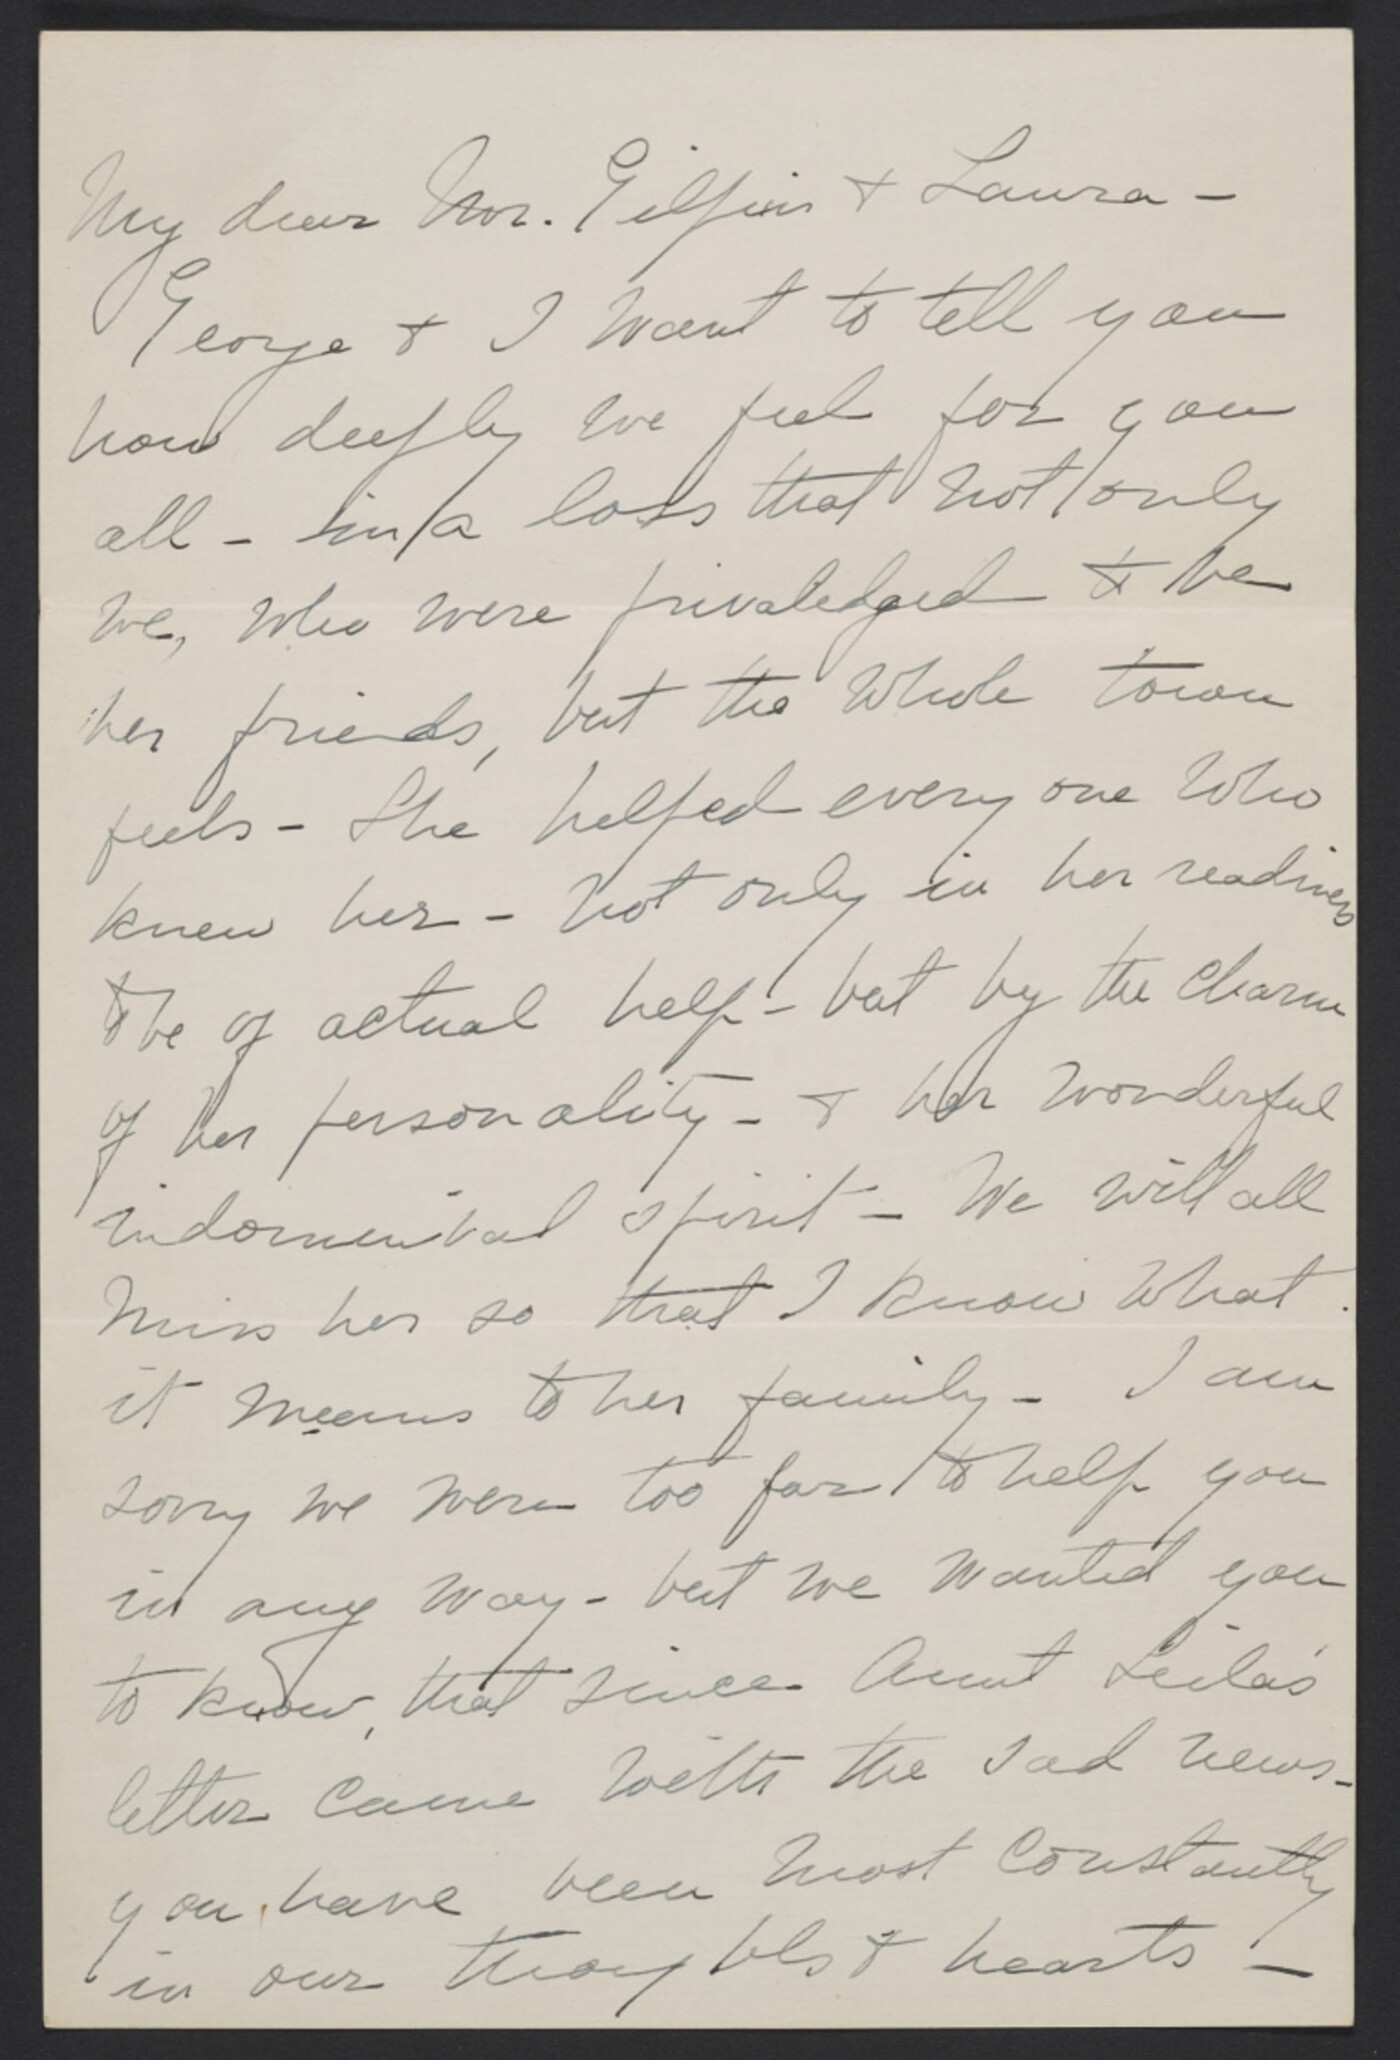 My dear Mr. Gilpin & Laura -
George & I want to tell you
how deeply we feel for you
all - in a loss that not only
we, who were privaledged to be
her friends, but the whole town
feels - She helped every one who
knew her - not only in her readiness
to be of actual help - but by the charm
of her personality - & her wonderful
indominbal spirit - We will all
miss her so that I know what
it means to her family - I am
sorry we were too far to help you
in any way - but we wanted you
to know, that since Aunt Leila's
letter came with the sad news -
you have been most constantly
in our thoughts & hearts -